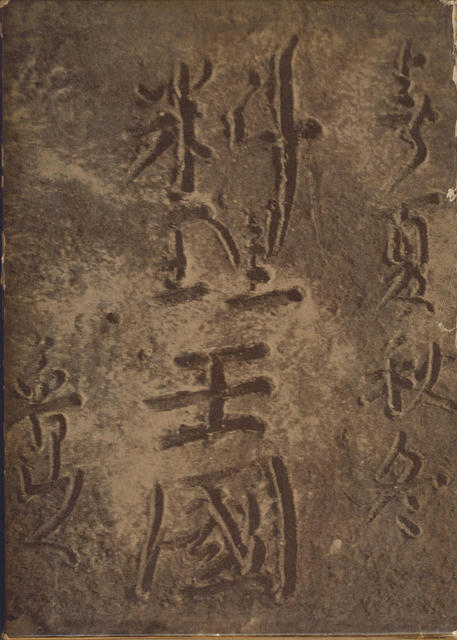 春夏秋冬
料理王國
魯山人